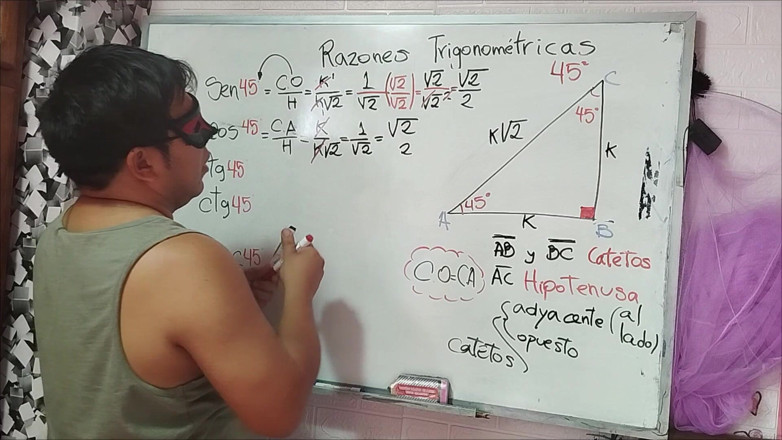 Razones Trigonométricas
Sen45 = CO/H = K1/K√2 = 1/√2 (√2/√2) = √2/√2² = √2/2
os 45 = CA/H = K/K√2 = 1/√2 = √2/2
tg45
ctg45
c45
45°
C
45°
K√2
K
A
45°
K
B
CO=CA
AB y BC Catetos
AC Hipotenusa
catetos { adyacente (al lado)
opuesto